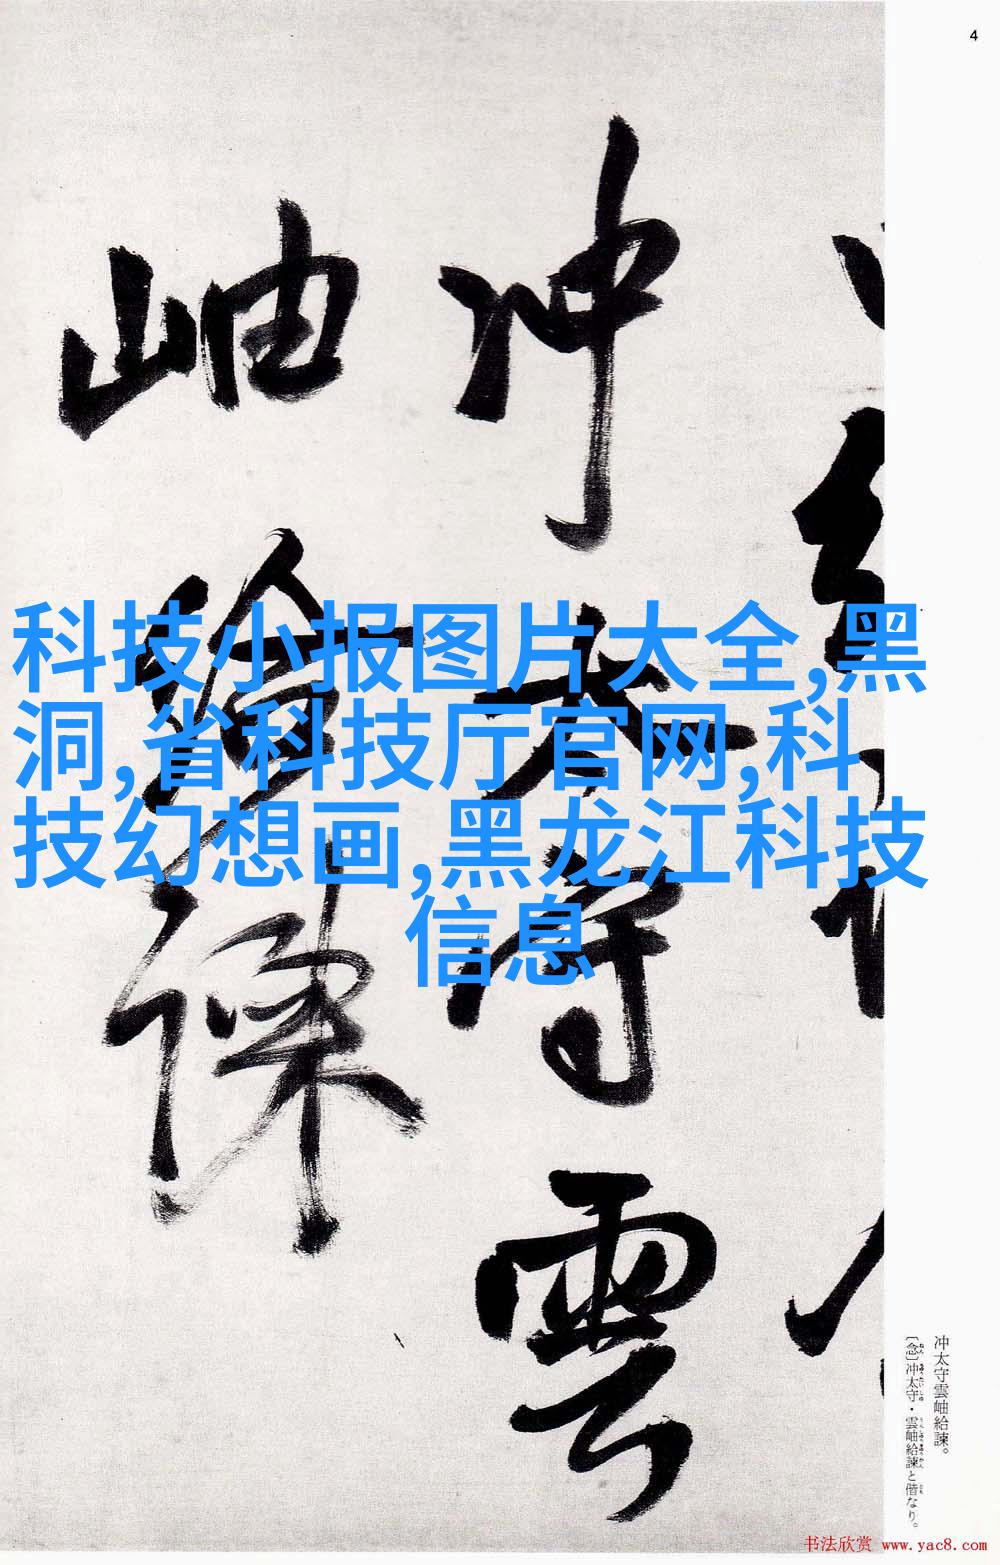 4
冲太守雲
岫給諫
科技小报图片大全,黑
洞,省科技厅官网,科
技幻想画,黑龙江科技
信息
冲太守雲岫給諫。
〔念〕冲太守・雲岫給諫と偕なり。
书法欣赏 www.yac8.com